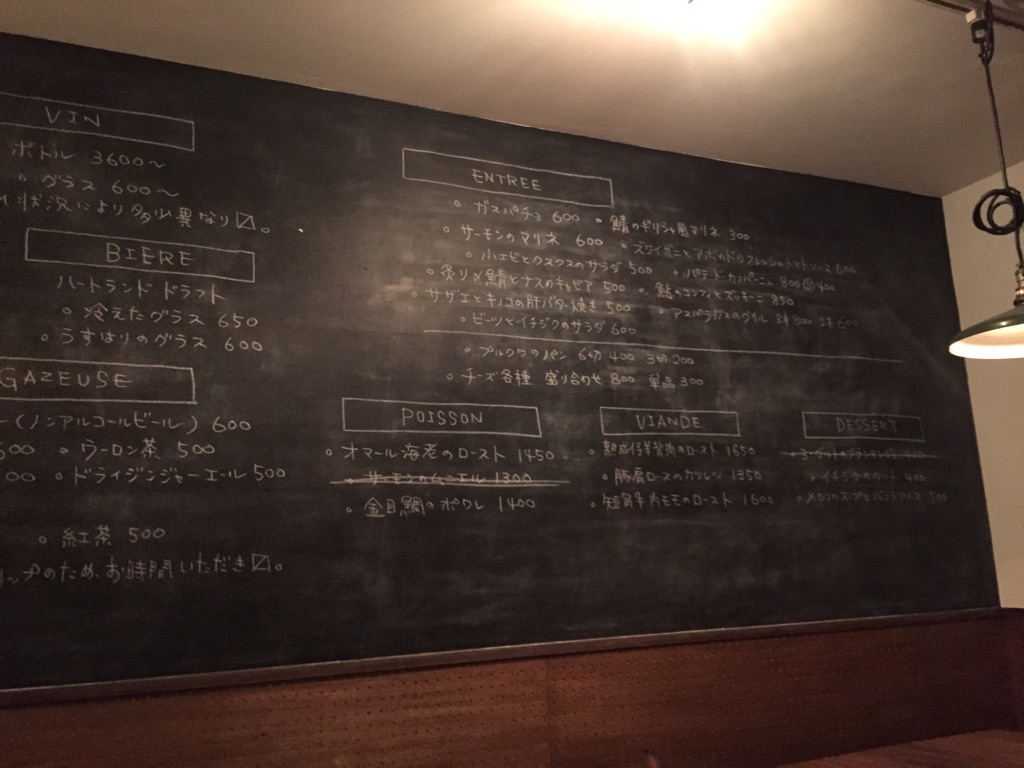 VIN
ボトル 3600〜
。グラス 600〜
状況により多少異なり〼。
BIERE
ハートランド ドラフト
。冷えたグラス 650
。うすはりのグラス 600
GAZEUSE
ー(ノンアルコールビール) 600
00 。ウーロン茶 500
00 。ドライジンジャーエール 500
。紅茶 500
ップのため、お時間いただき〼。
ENTREE
。ガスパチョ 600
。サーモンのマリネ 600
。小エビとクスクスのサラダ 500
。炙り〆鯖とナスのキャビア 500
。サザエとキノコの肝バター焼き 500
。ビーツとイチジクのサラダ 600
。鯖のギリシャ風マリネ 300
。ズワイガニとアボカドのフレッシュトマトソース 600
。パテドカンパーニュ 800 400
。鮎のコンフィとズッキーニ 850
。アスパラガスのグリル 3本 800 2本 600
。プルクワのパン 6切 400 3切 200
。チーズ各種 盛り合わせ 800 単品 300
POISSON
。オマール海老のロースト 1450
。サーモンのムニエル 1300
。金目鯛のポワレ 1400
VIANDE
。熟成仔羊背肉のロースト 1650
。豚肩ロースのカツレツ 1350
。短角牛内モモのロースト 1600
DESSERT
。ヨーグルトのブランマンジェ 400
。イチジクのタルト 400
。メロンのスープとバニラアイス 500